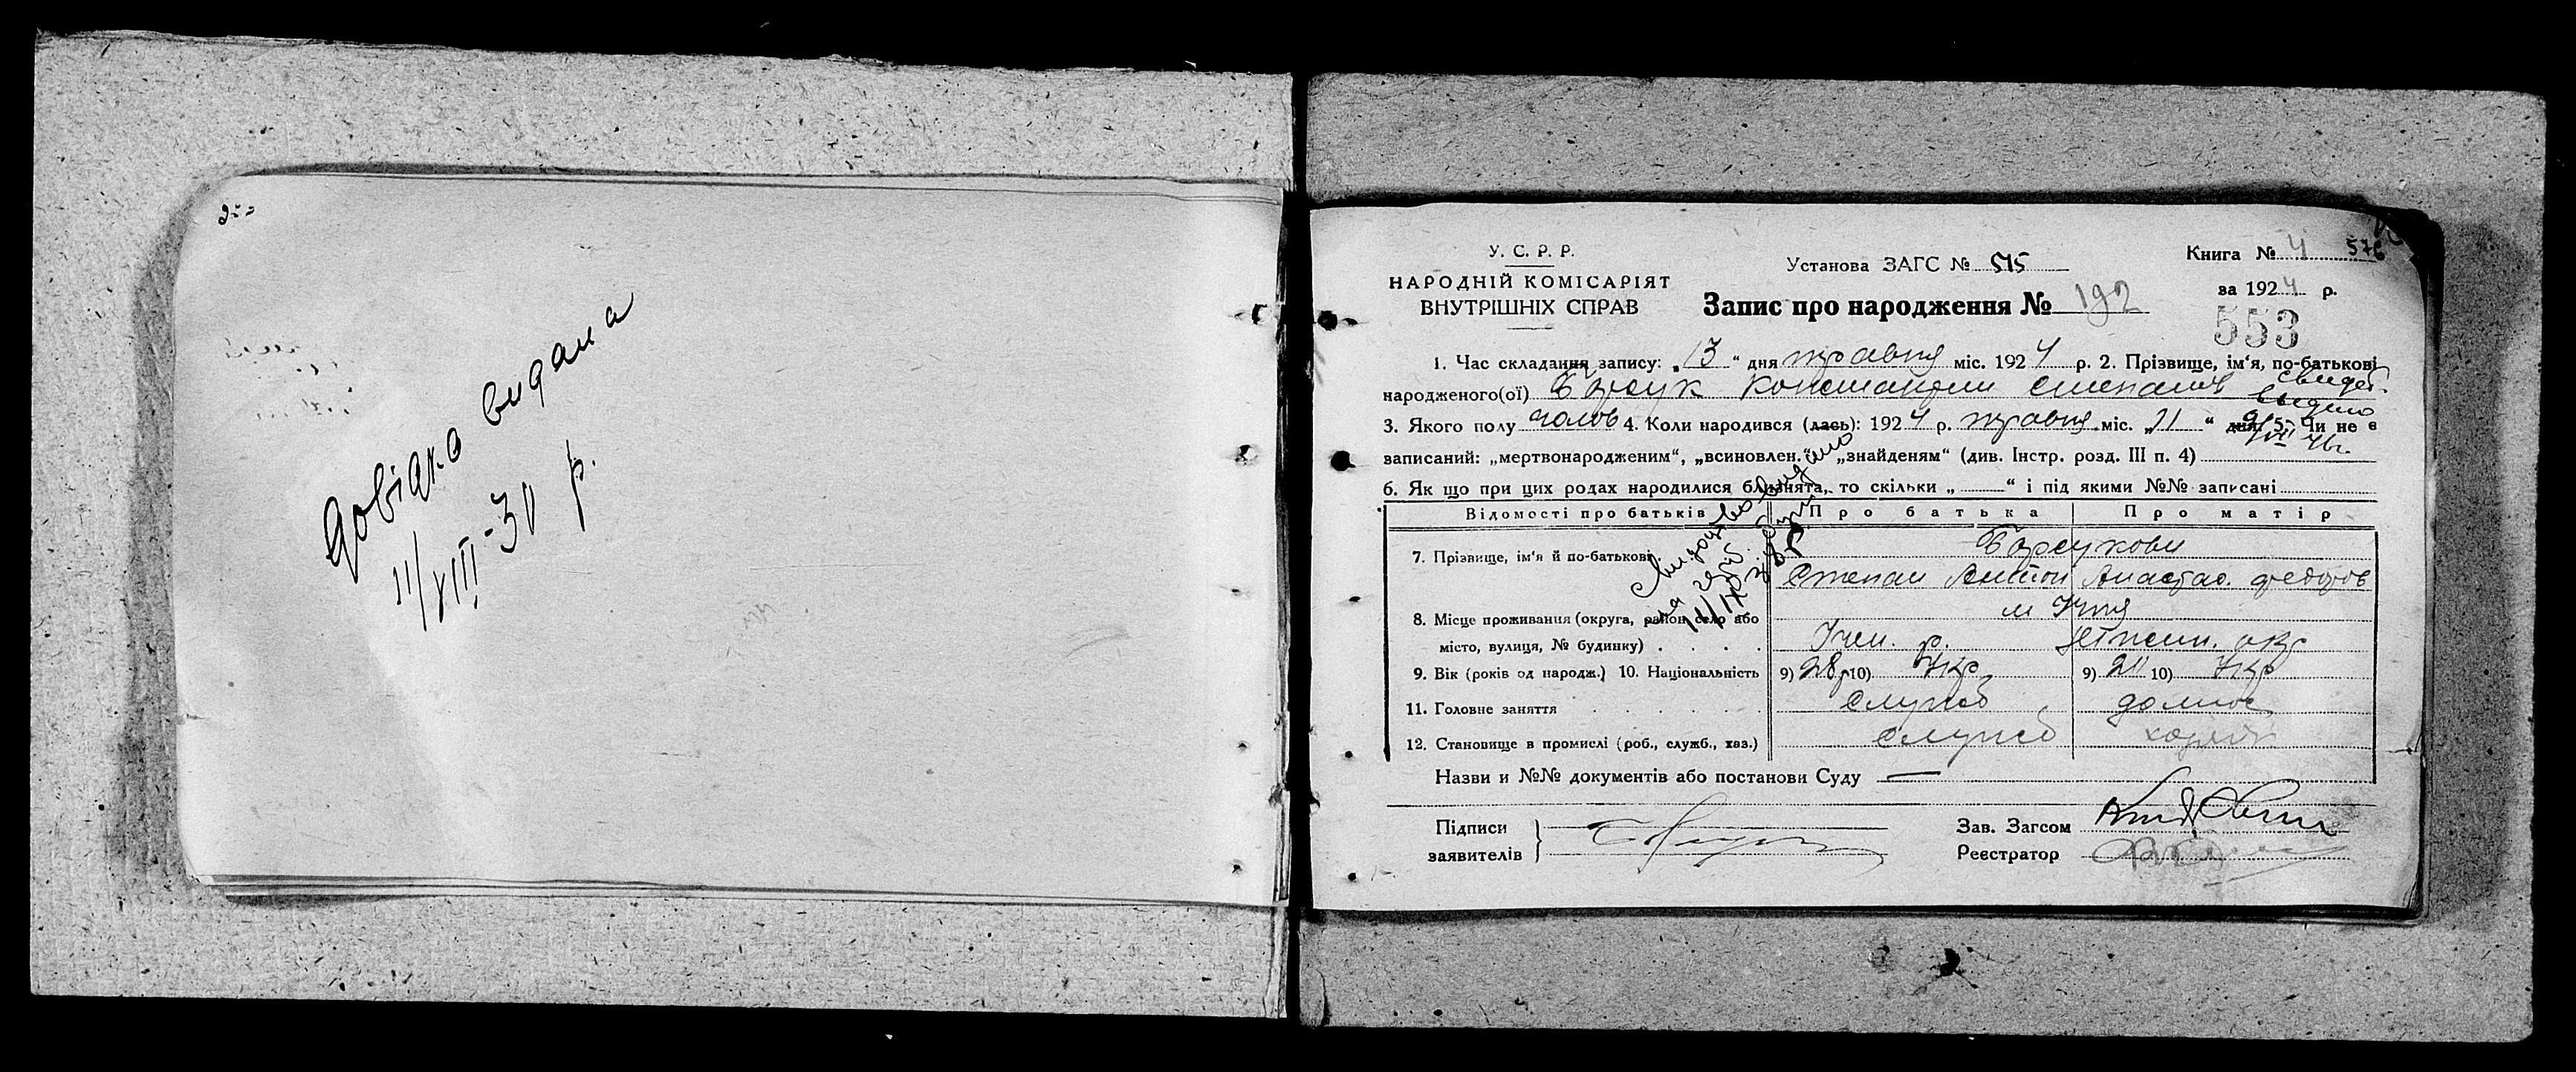 Довідка видана
11/VIII-30 р.
У. С. Р. Р.
НАРОДНІЙ КОМІСАРІЯТ
ВНУТРІШНІХ СПРАВ
Установа ЗАГС № 515
Запис про народження № 192
Книга № 4
576
за 1924 р.
553
1. Час складання запису: „13“ дня травня міс. 1924 р. 2. Прізвище, ім‘я, по-батькові
народженого(ої) Барсук Константин Степанов
свидет.
видано
3. Якого полу чолов 4. Коли народився (лась): 1924 р. травня міс. „11“ дня 5. Чи не є
записаний: „мертвонародженим“, „всиновлен.“, „знайденям“ (див. Інстр. розд. III п. 4)
6. Як що при цих родах народилися близнята, то скільки „ “ і під якими №№ записані
Відомості про батьків
Про батька
Про матір
7. Прізвище, ім‘я й по-батькові
Барсукови
Степан Антон
Анастас. Федоров
8. Місце проживання (округа, район, село або
місто, вулиця, № будинку)
м Ічня
Ічен. р.
Ніжин. окр
9. Вік (років од народж.) 10. Національність
9) 28 10) Укр
9) 211 10) Укр
11. Головне заняття
Служб
домос
12. Становище в промислі (роб., служб., хаз.)
Служб
Свидоцтво видано
Назви и №№ документів або постанови Суду —
Підписи
заявителів
Зав. Загсом
Реєстратор